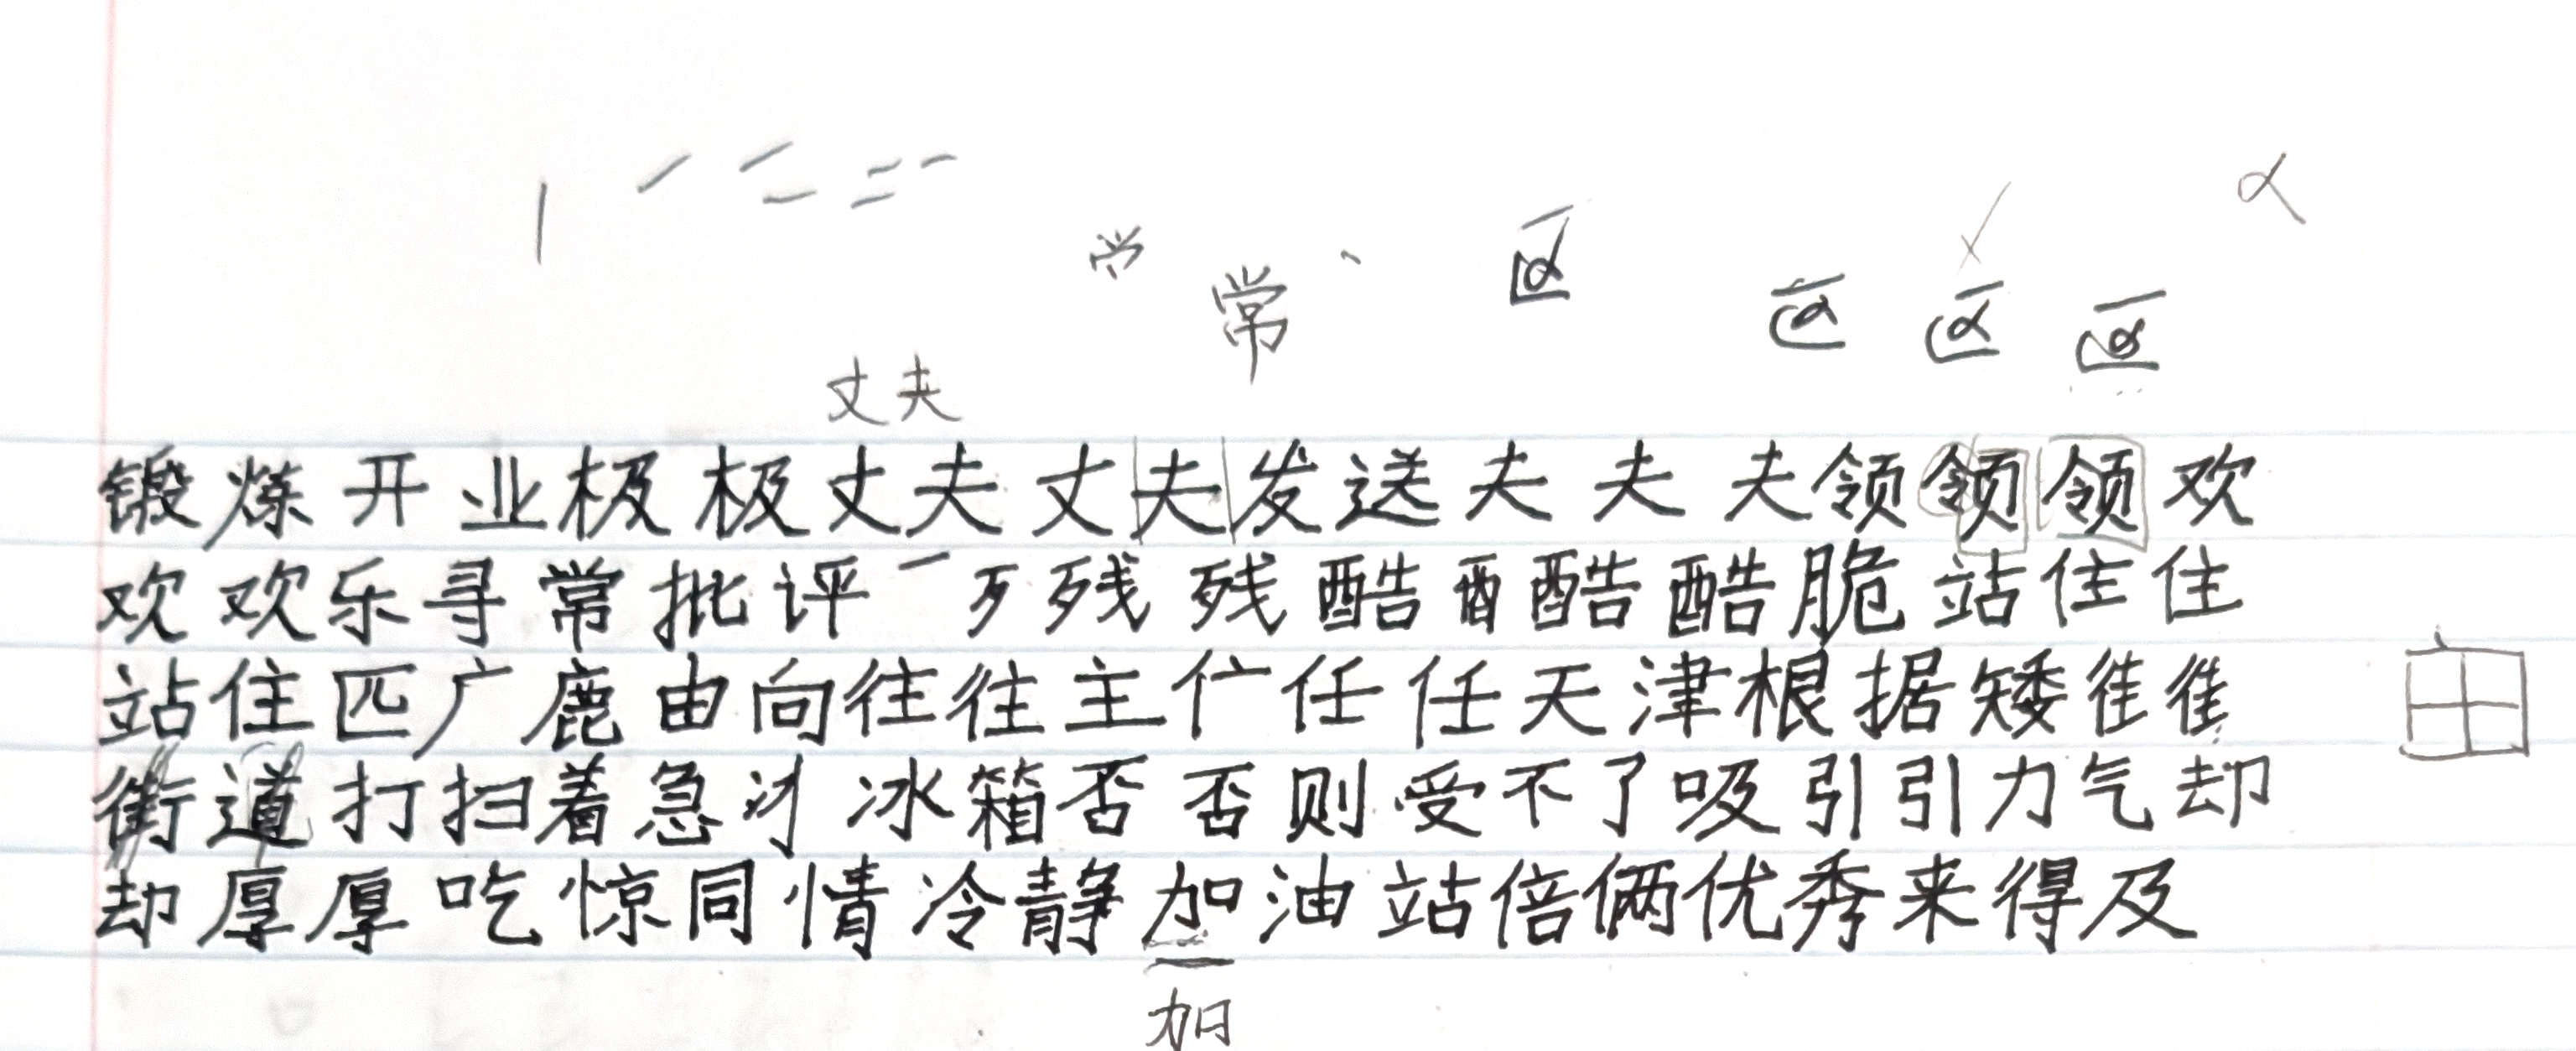 常
丈夫
锻炼开业极极丈夫丈夫发送夫夫夫领领领欢
欢欢乐寻常批评一歹残残酷酉酷酷脆站住住
站住匹广鹿由向往往主任任天津根据矮
街道打扫着急冰箱否否则受不了吸引引力气却
却厚厚吃惊同情冷静加油站倍俩优秀来得及
加